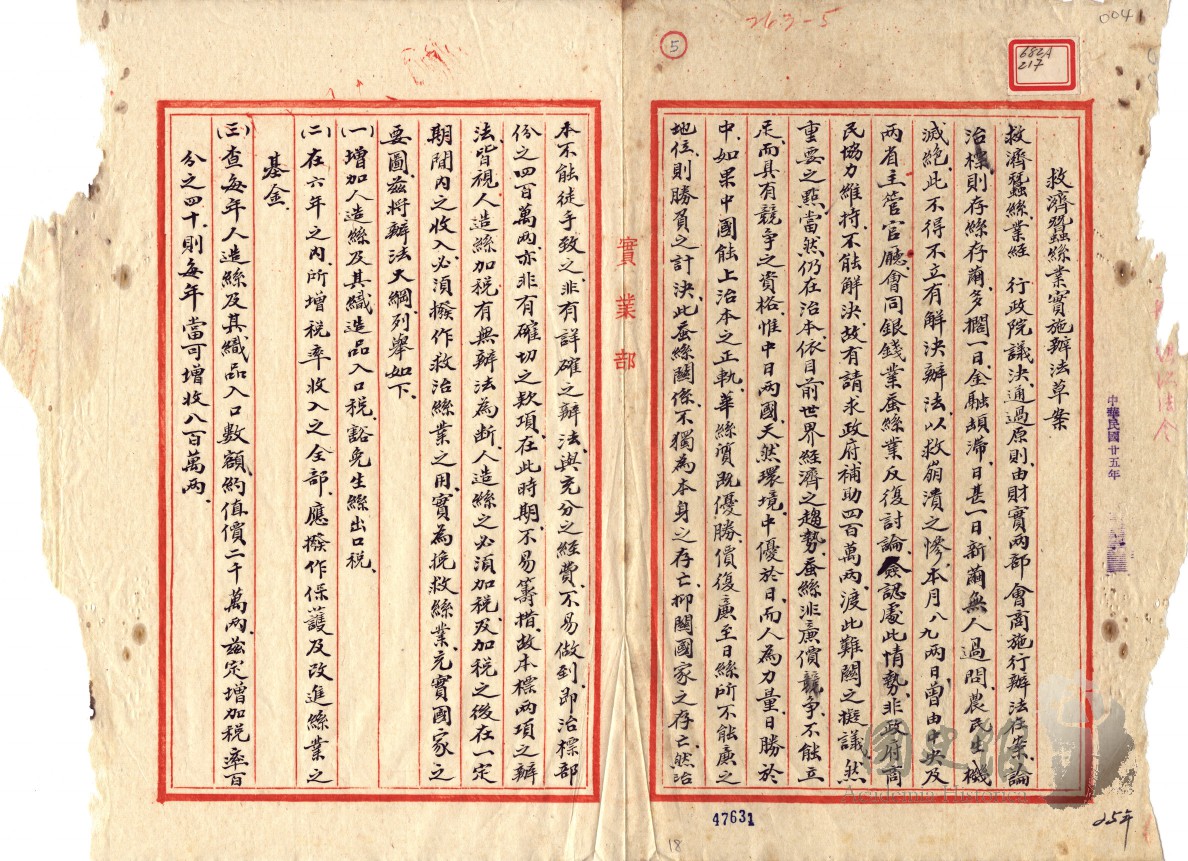 263-5
004
5
682A
217
救濟蠶絲業實施辦法草案
救濟蠶絲業經 行政院議決、通過原則、由財實兩部會商施行辦法在案、論
治標、則存絲存繭、多擱一日、金融頓滯、日甚一日、新繭無人過問、農民生機
滅絕、此不得不立有解決辦法、以救崩潰之慘、本月八九兩日、曾由中央及
兩省主管官廳會同銀錢業蚕絲業反復討論、僉認處此情勢、非政府商
民協力維持、不能解決、故有請求政府補助四百萬兩、渡此難關之擬議、然
重要之點、當然仍在治本、依目前世界經濟之趨勢、蚕絲非廉價競爭、不能立
足、而具有競爭之資格、惟中日兩國、天然環境、中優於日、而人為力量、日勝於
中、如果中國能上治本之正軌、華絲質既優勝、價復廉至日絲所不能廉之
地位、則勝負之計決、此蚕絲關係、不獨為本身之存亡、抑關國家之存亡、然治
實業部
本不能徒手致之、非有詳確之辦法、與充分之經費、不易做到、即治標部
份之四百萬兩、亦非有確切之欵項、在此時期、不易籌措、故本標兩項之辦
法、皆視人造絲加稅有無辦法為斷、人造絲之必須加稅、及加稅之後、在一定
期間內之收入、必須撥作救治絲業之用、實為挽救絲業、充實國家之
要圖、茲將辦法大綱、列舉如下、
(一)增加人造絲及其織造品入口稅、豁免生絲出口稅、
(二)在六年之內、所增稅率收入之全部、應撥作保護及改進絲業之
基金、
(三)查每年人造絲及其織品入口數額、約值價二千萬兩、茲定增加稅率百
分之四十、則每年當可增收八百萬兩、
中華民國廿五年
國史館
Academia Historica
47631
18
25年